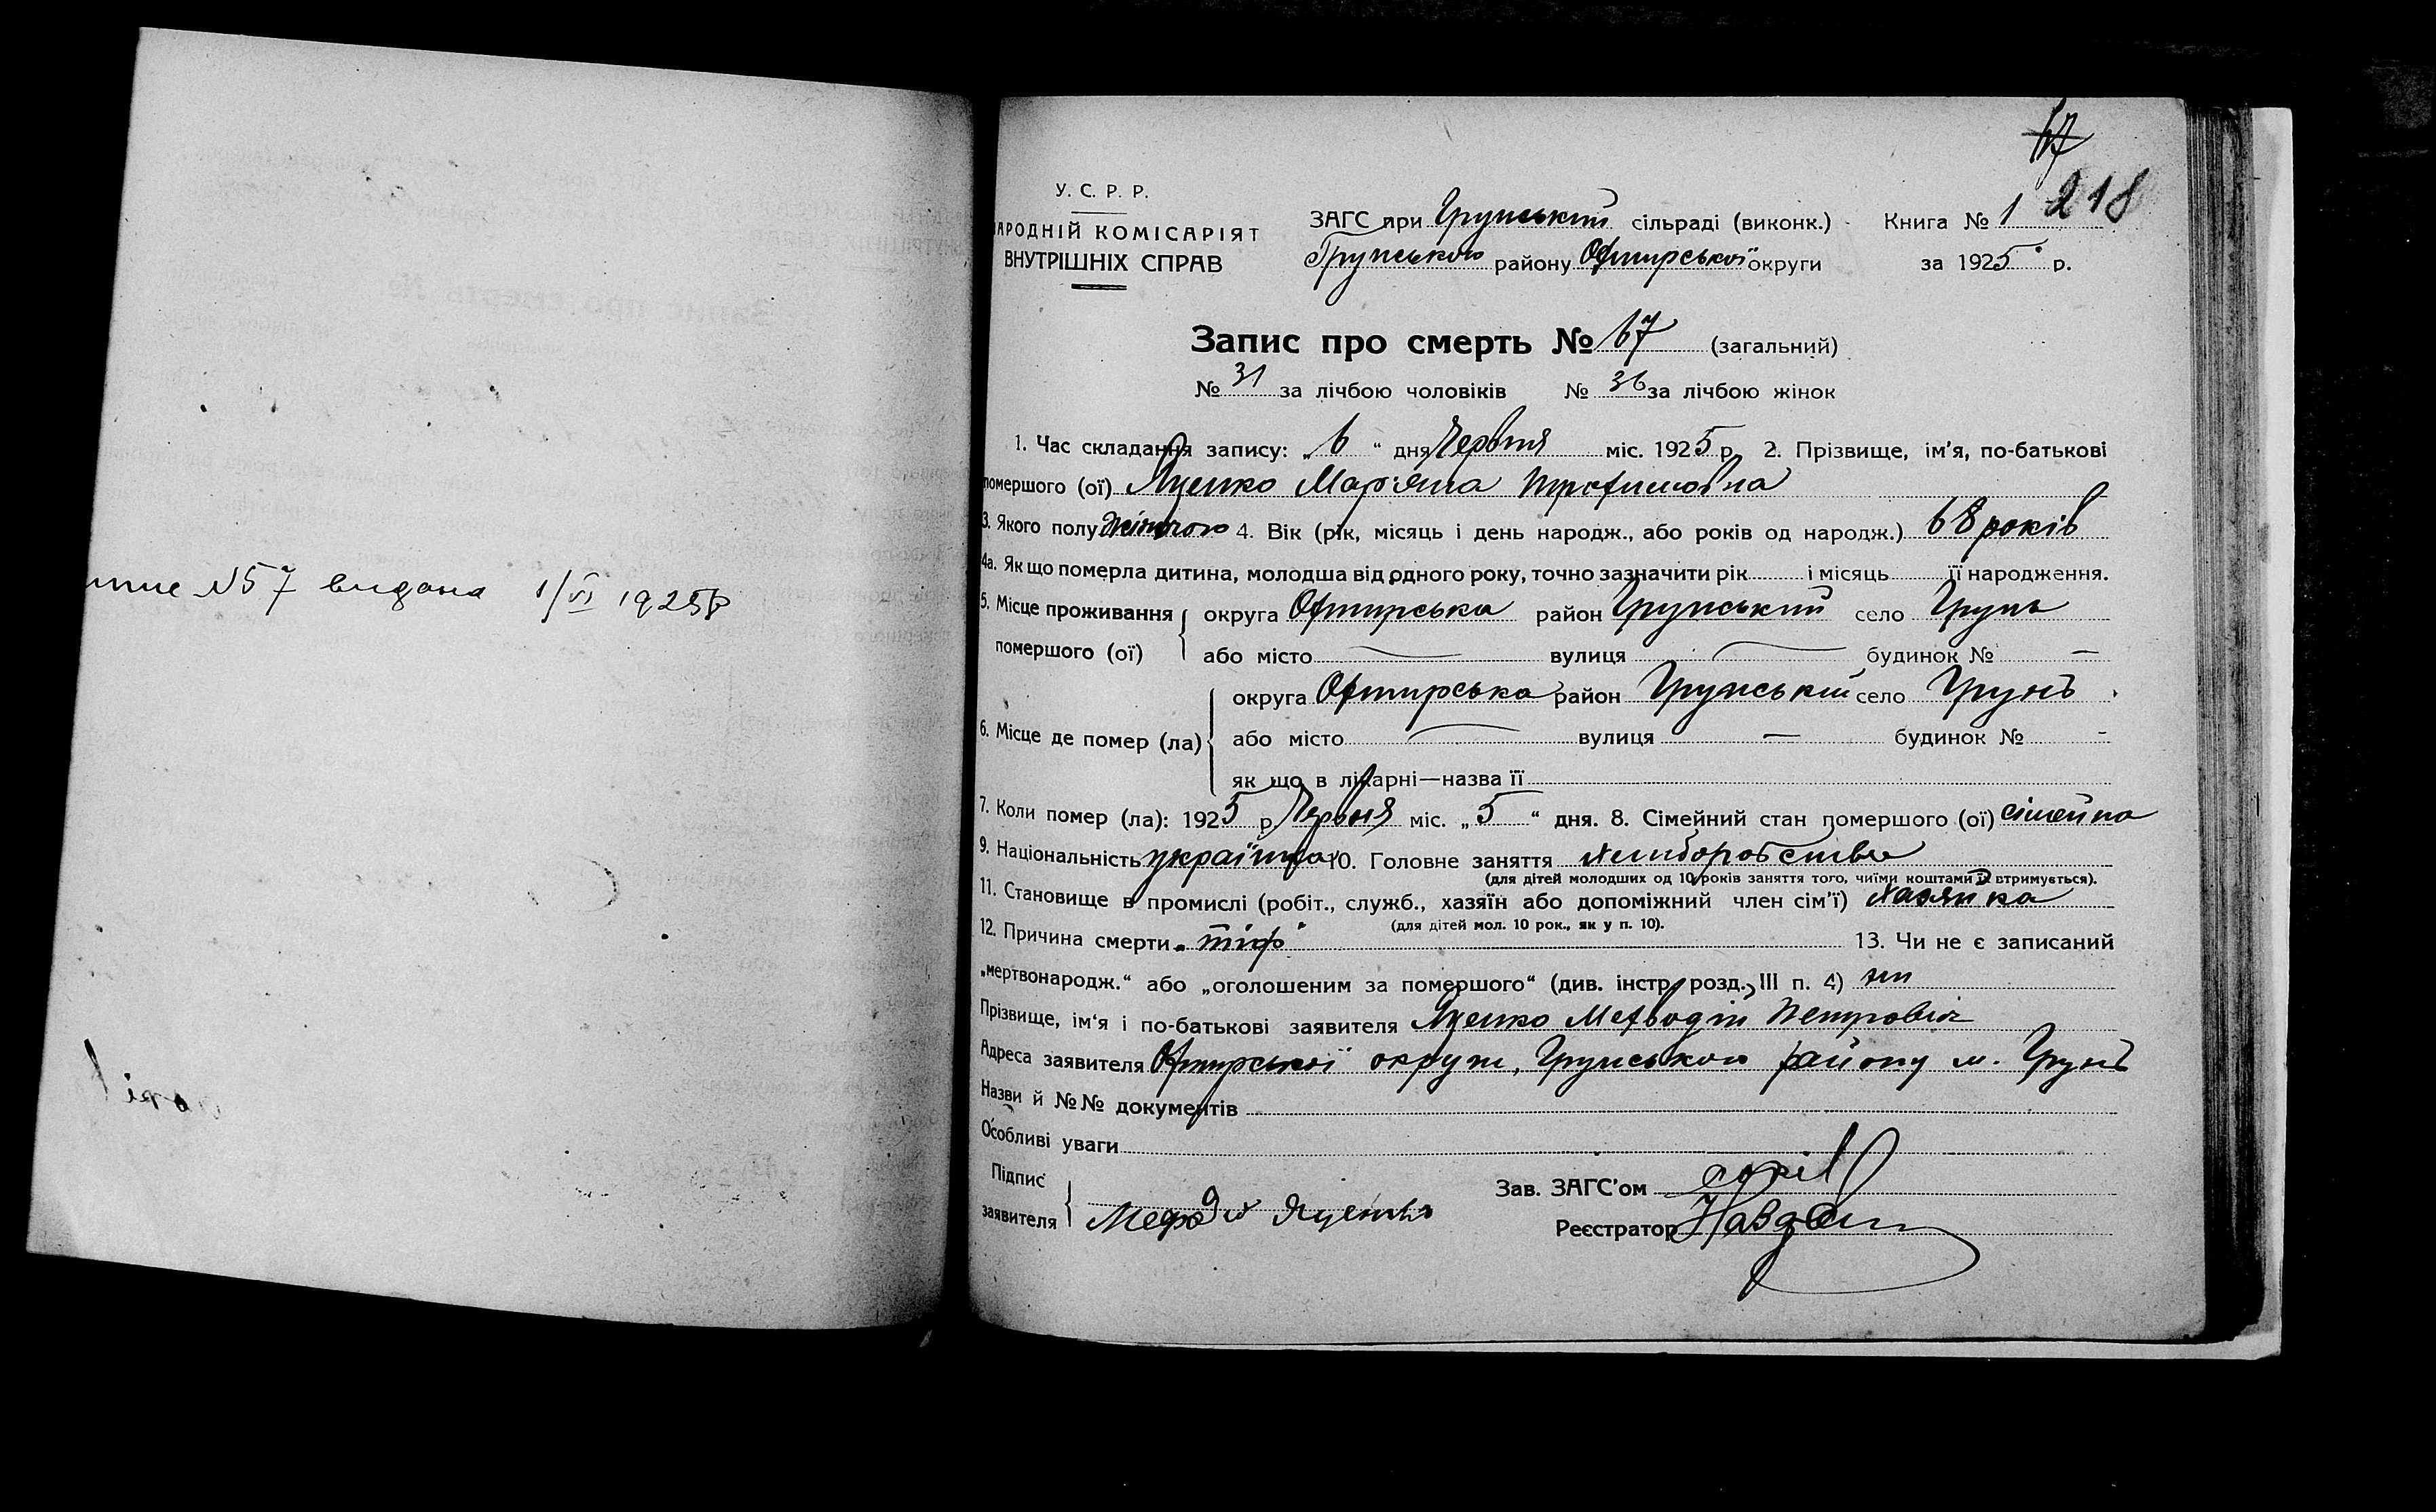 67
218
У. С. Р. Р.
НАРОДНІЙ КОМІСАРІЯТ
ВНУТРІШНІХ СПРАВ
ЗАГС при Грунський сільраді (виконк.) Книга № 1
Грунського району Охтирської округи за 1925 р.
Запис про смерть № 67 (загальний)
№ 31 за лічбою чоловіків № 36 за лічбою жінок
1. Час складання запису: „6“ дня Червня міс. 1925 р. 2. Прізвище, ім'я, по-батькові
помершого (ої) Яценко Мар'яна Трофимовна
3. Якого полу жіночого 4. Вік (рік, місяць і день народж., або років од народж.) 68 років
4а. Як що померла дитина, молодша від одного року, точно зазначити рік і місяць її народження.
5. Місце проживання помершого (ої) округа Охтирська район Грунський село Грунь
або місто — вулиця — будинок № —
6. Місце де помер (ла) округа Охтирська район Грунський село Грунь
або місто — вулиця — будинок № -
як що в лікарні—назва її
7. Коли помер (ла): 1925 р. Червня міс. „5“ дня. 8. Сімейний стан помершого (ої) сімейна
9. Національність українка 10. Головне заняття хліборобство
(для дітей молодших од 10 років заняття того, чиїми коштами їх втримується).
11. Становище в промислі (робіт., служб., хазяїн або допоміжний член сім'ї) хазяйка
(для дітей мол. 10 рок., як у п. 10).
12. Причина смерти „тіф“ 13. Чи не є записаний
„мертвонародж.“ або „оголошеним за помершого“ (див. інстр. розд. III п. 4) ні
Прізвище, ім'я і по-батькові заявителя Яценко Мефводій Петровіч
Адреса заявителя Охтирської округи, Грунського району м. Грунь
Назви й №№ документів
Особливі уваги
Підпис заявителя Мефодій Яценко
Зав. ЗАГС'ом
Реєстратор
№ 57 видана 1/VI 1925 р